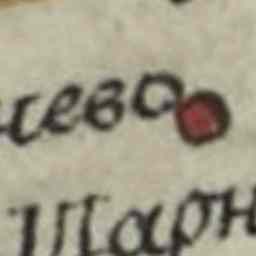 чево
Шарн